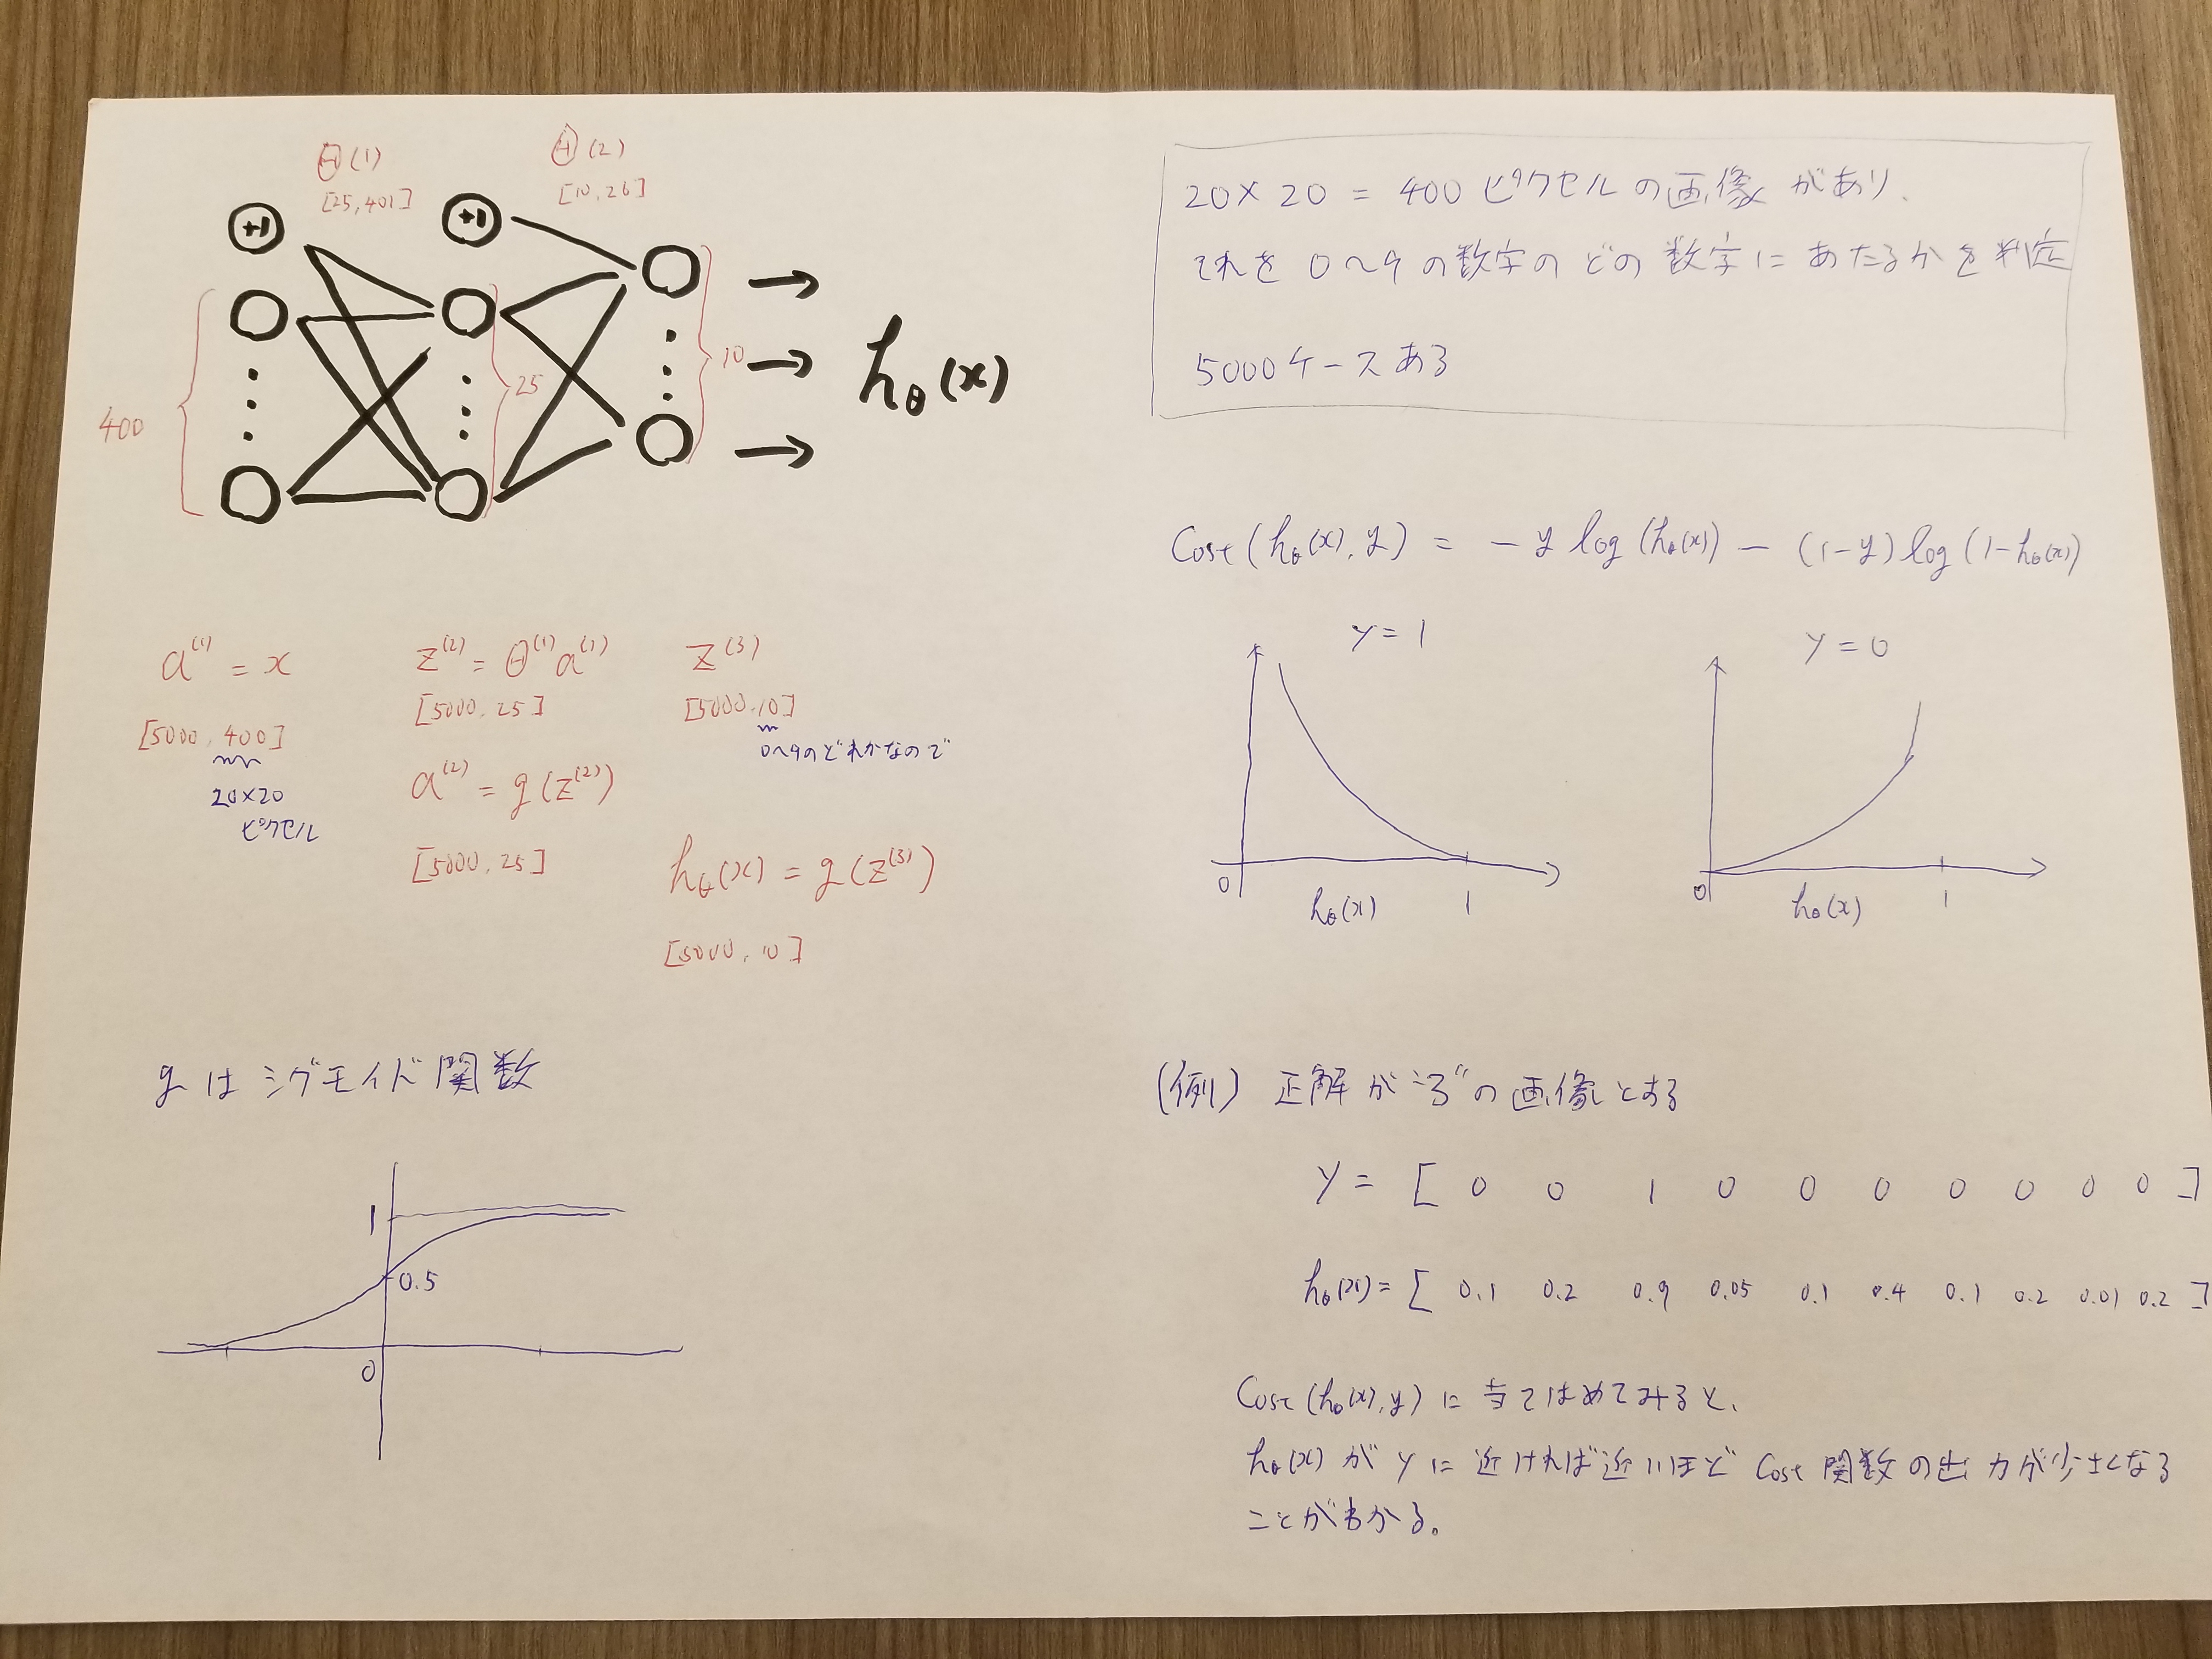 Θ(1)
[25,401]
Θ(2)
[10,26]
+1
+1
400
25
10
hθ(x)
a(1) = x
[5000,400]
20×20
ピクセル
z(2) = Θ(1)a(1)
[5000,25]
a(2) = g(z(2))
[5000,25]
z(3)
[5000,10]
0〜9のどれかなので
hθ(x) = g(z(3))
[5000,10]
gはシグモイド関数
1
0.5
0
20×20=400ピクセルの画像があり、
それを0〜9の数字のどの数字にあたるかを判定
5000ケースある
Cost(hθ(x),y) = -y log(hθ(x)) - (1-y)log(1-hθ(x))
y=1
0
hθ(x)
1
y=0
0
hθ(x)
1
(例) 正解が"3"の画像とする
y = [ 0 0 1 0 0 0 0 0 0 0 ]
hθ(x) = [ 0.1 0.2 0.9 0.05 0.1 0.4 0.1 0.2 0.01 0.2 ]
Cost(hθ(x),y)に当てはめてみると、
hθ(x)がyに近ければ近いほどCost関数の出力が小さくなる
ことがわかる。